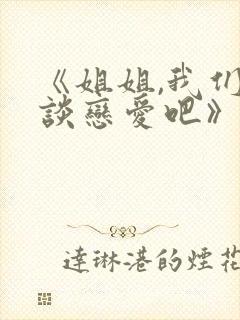 《姐姐,我们
談戀愛吧》
達琳港的煙花